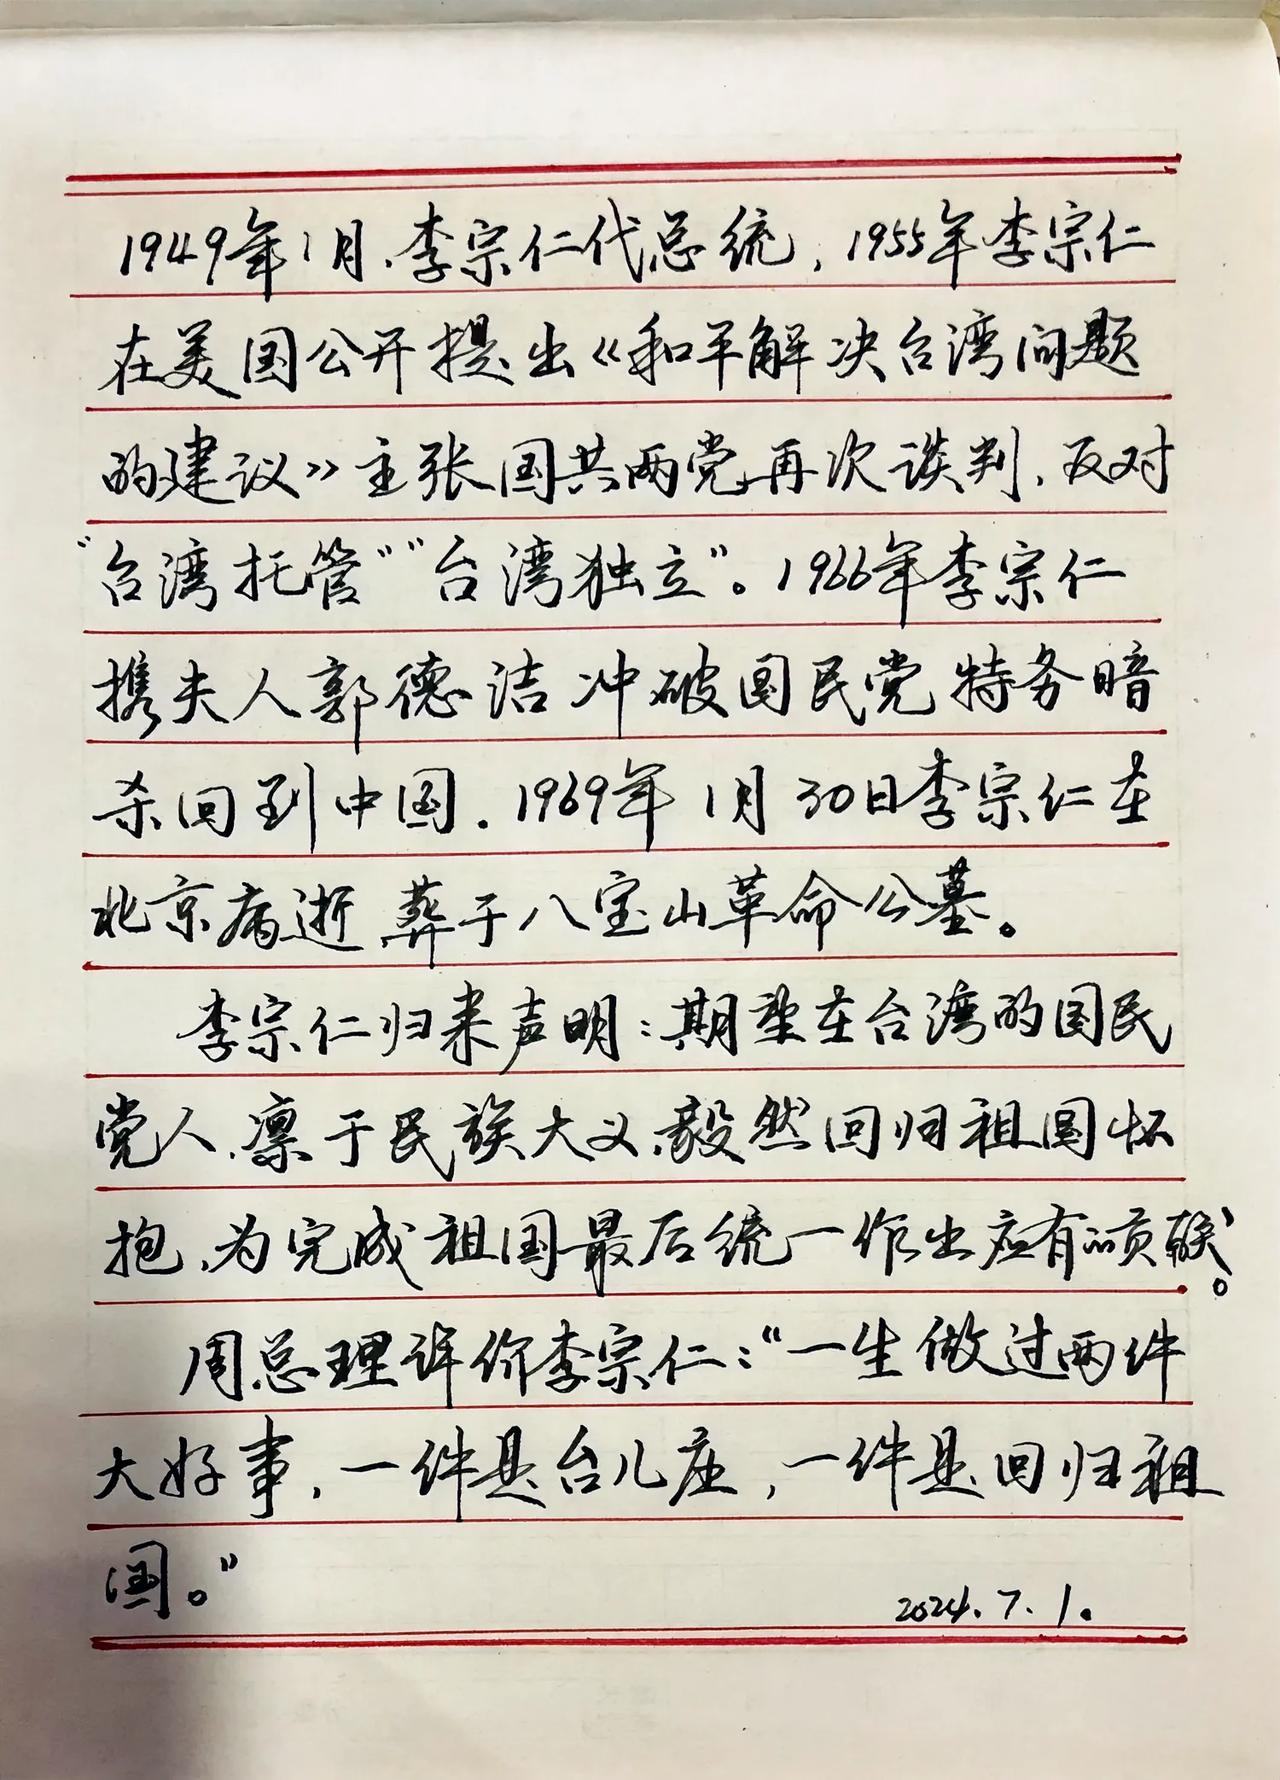 1949年1月.李宗仁代总统,1955年李宗仁
在美国公开提出《和平解决台湾问题
的建议》主张国共两党再次谈判.反对
"台湾托管""台湾独立"。1966年李宗仁
携夫人郭德洁冲破国民党特务暗
杀回到中国.1969年1月30日李宗仁在
北京病逝.葬于八宝山革命公墓。
李宗仁归来声明:期望在台湾的国民
党人.凛于民族大义.毅然回归祖国怀
抱.为完成祖国最后统一作出应有的贡献。
周总理评价李宗仁:"一生做过两件
大好事,一件是台儿庄,一件是回归祖
国。"
2024.7.1.